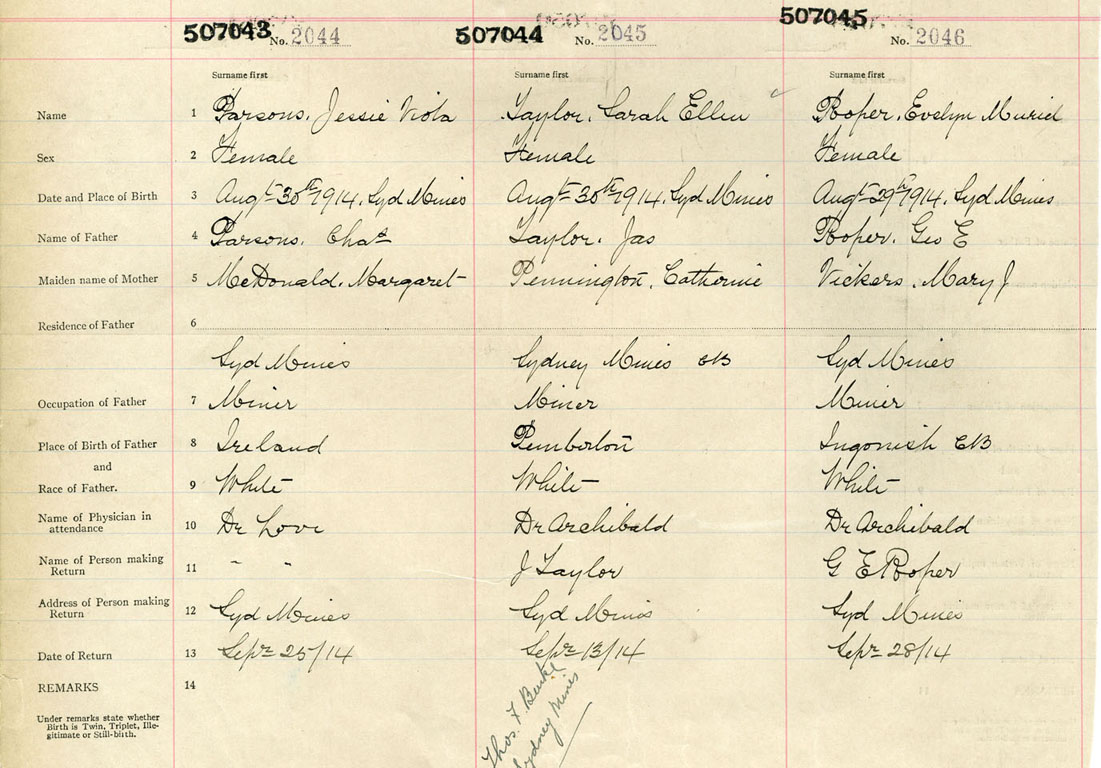 507043 No. 2044 507044 No. 2045 507045 No. 2046
Surname first Surname first Surname first
Name 1 Parsons, Jessie Viola Taylor, Sarah Ellen Pooper, Evelyn Muriel
Sex 2 Female Female Female
Date and Place of Birth 3 Augt 30th 1914, Syd Mines Augt 30th 1914, Syd Mines Augt 29th 1914, Syd Mines
Name of Father 4 Parsons, Chas Taylor, Jas Pooper, Geo E
Maiden name of Mother 5 McDonald, Margaret Pennington, Catherine Vickers, Mary J
Residence of Father 6
Syd Mines Sydney Mines CB Syd Mines
Occupation of Father 7 Miner Miner Miner
Place of Birth of Father 8 Ireland Pemberton Ingonish CB
and
Race of Father. 9 White White White
Name of Physician in
attendance 10 Dr Love Dr Archibald Dr Archibald
Name of Person making
Return 11 " " J Taylor G E Pooper
Address of Person making
Return 12 Syd Mines Syd Mines Syd Mines
Date of Return 13 Sepr 25/14 Sepr 13/14 Sepr 28/14
REMARKS 14
Under remarks state whether
Birth is Twin, Triplet, Ille-
gitimate or Still-birth.
Thos. F. Burke
Sydney Mines